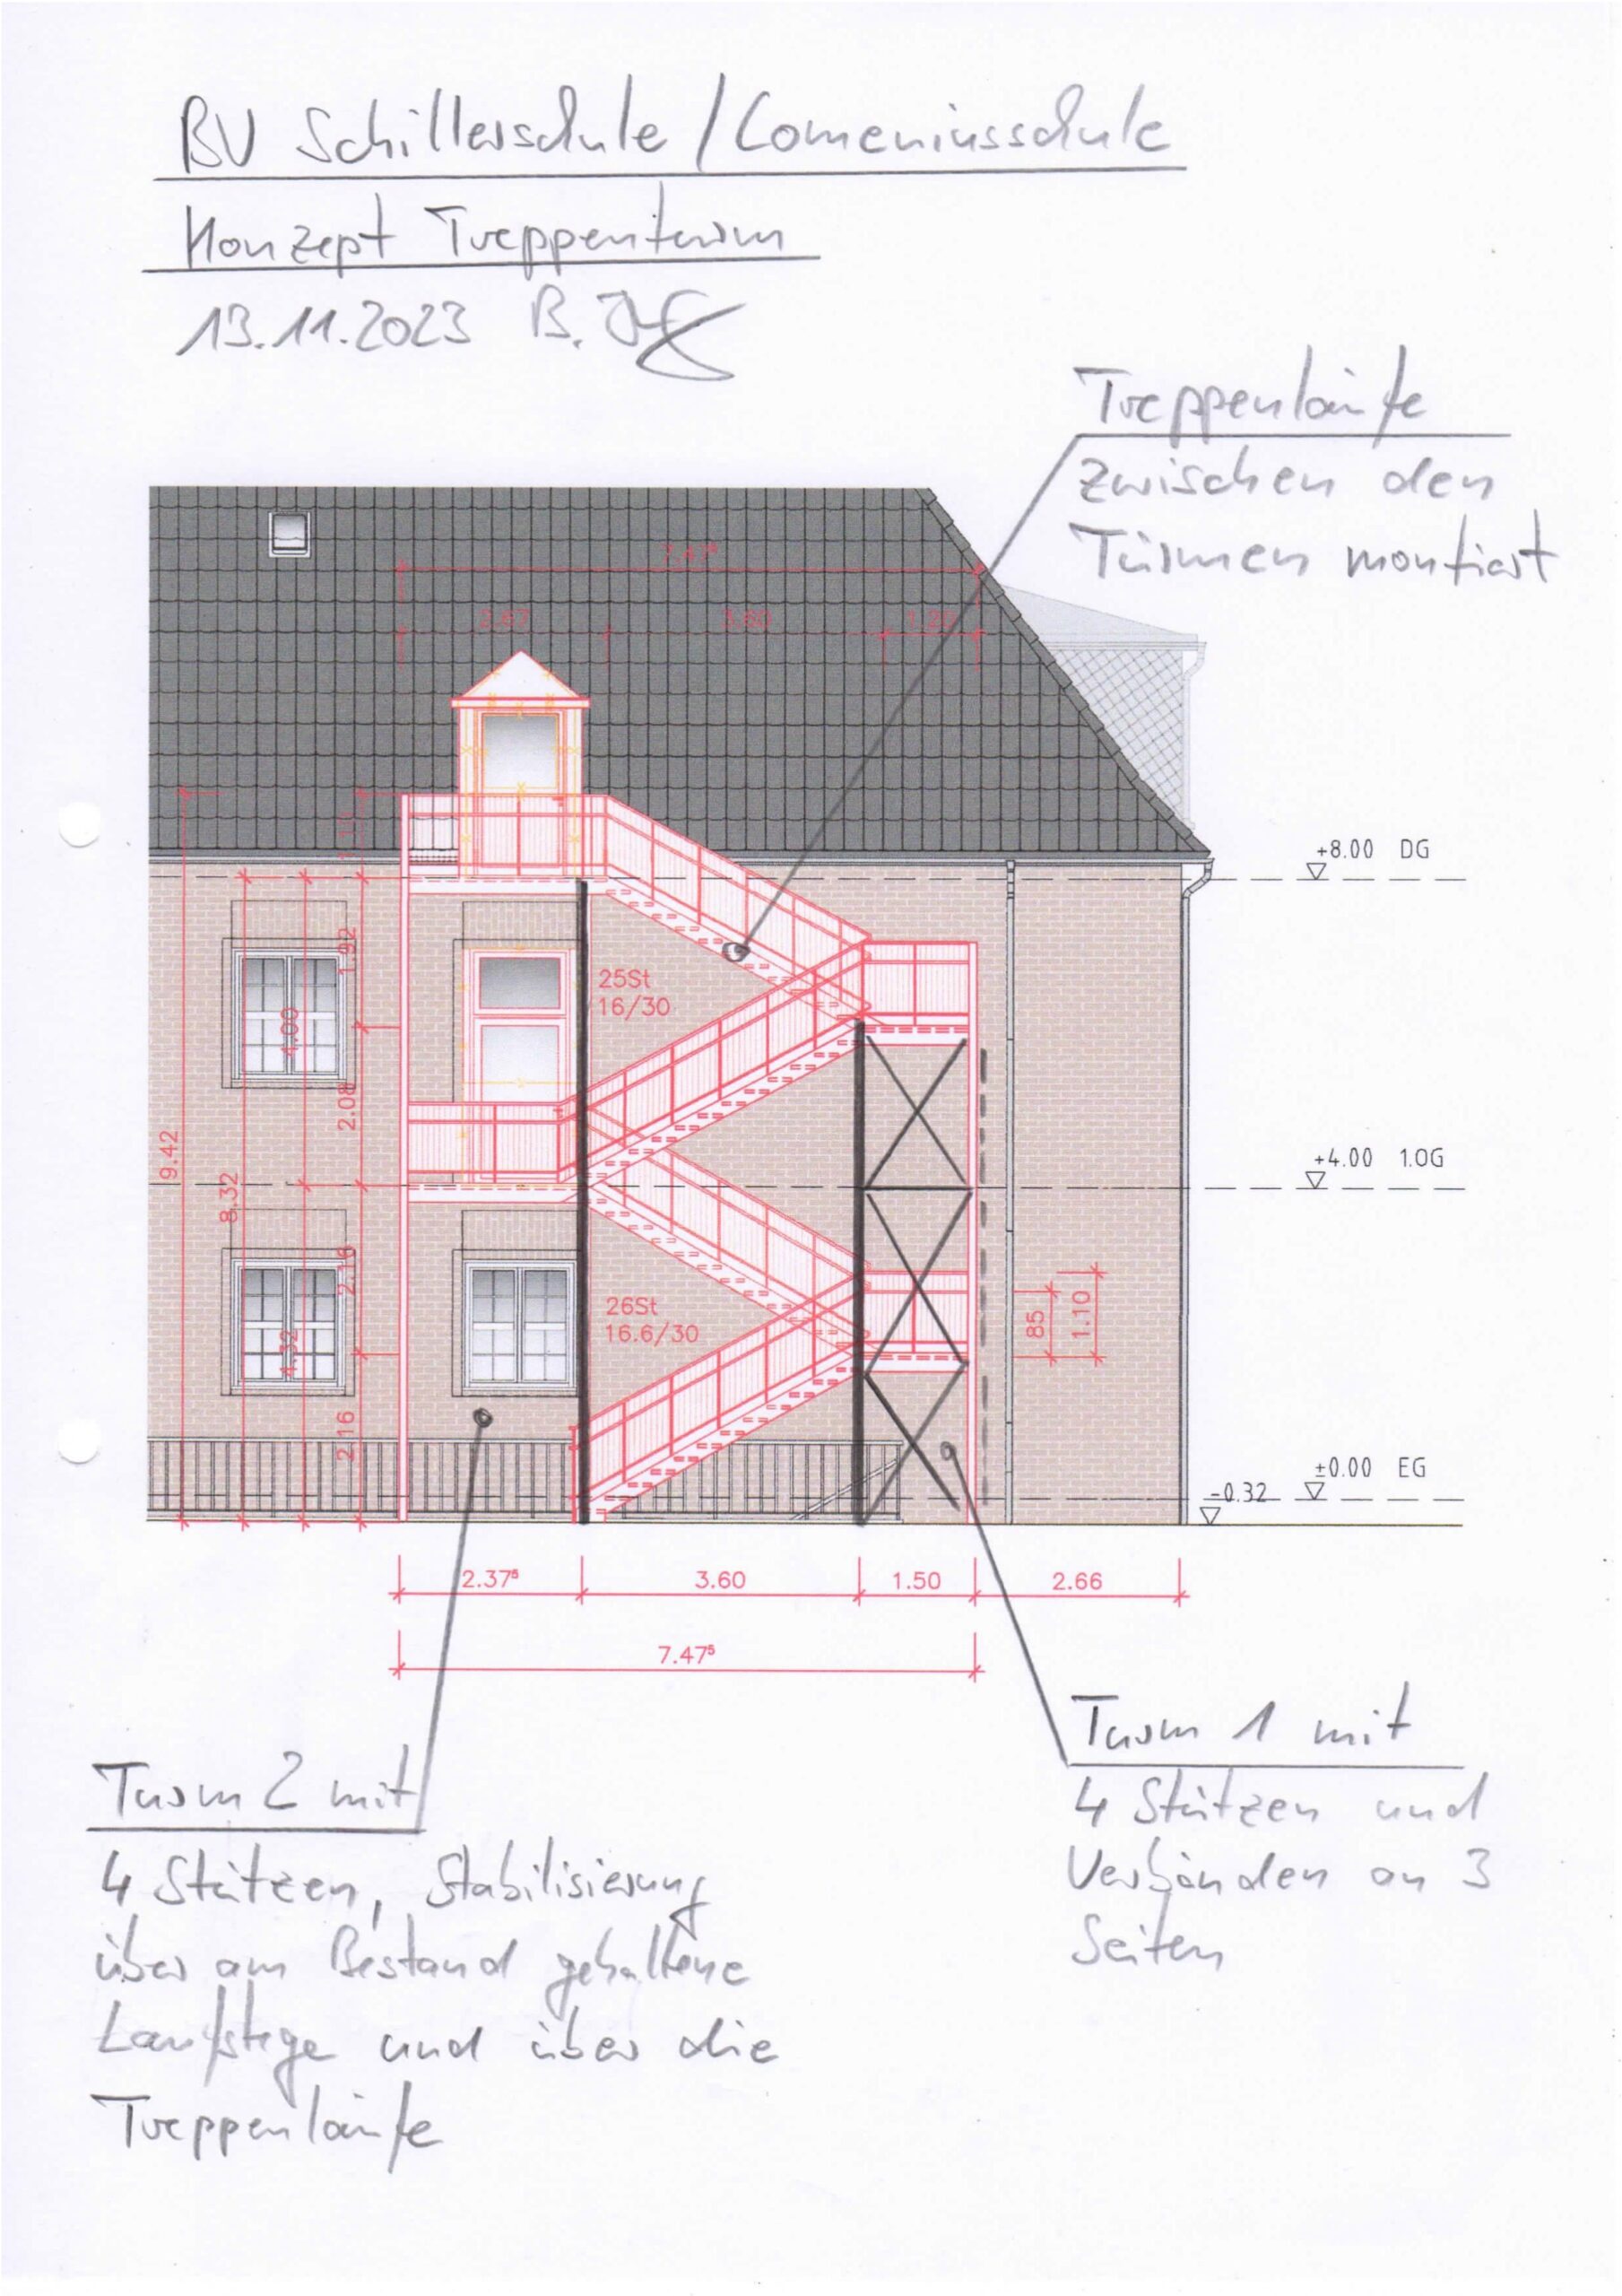 BV Schillerschule / Comeniusschule
Konzept Treppenturm
13.11.2023 B.
Treppenläufe
zwischen den
Türmen montiert
7.47⁵
2.67 3.60 1.20
1.10
+8.00 DG
1.92
25St
16/30
4.00
2.08
9.42
8.32
+4.00 1.OG
2.16
26St
16.6/30
4.32
85
1.10
2.16
±0.00 EG
-0.32
2.37⁵ 3.60 1.50 2.66
7.47⁵
Turm 1 mit
4 Stützen und
Verbänden an 3
Seiten
Turm 2 mit
4 Stützen, Stabilisierung
über am Bestand gehaltene
Laufstege und über die
Treppenläufe